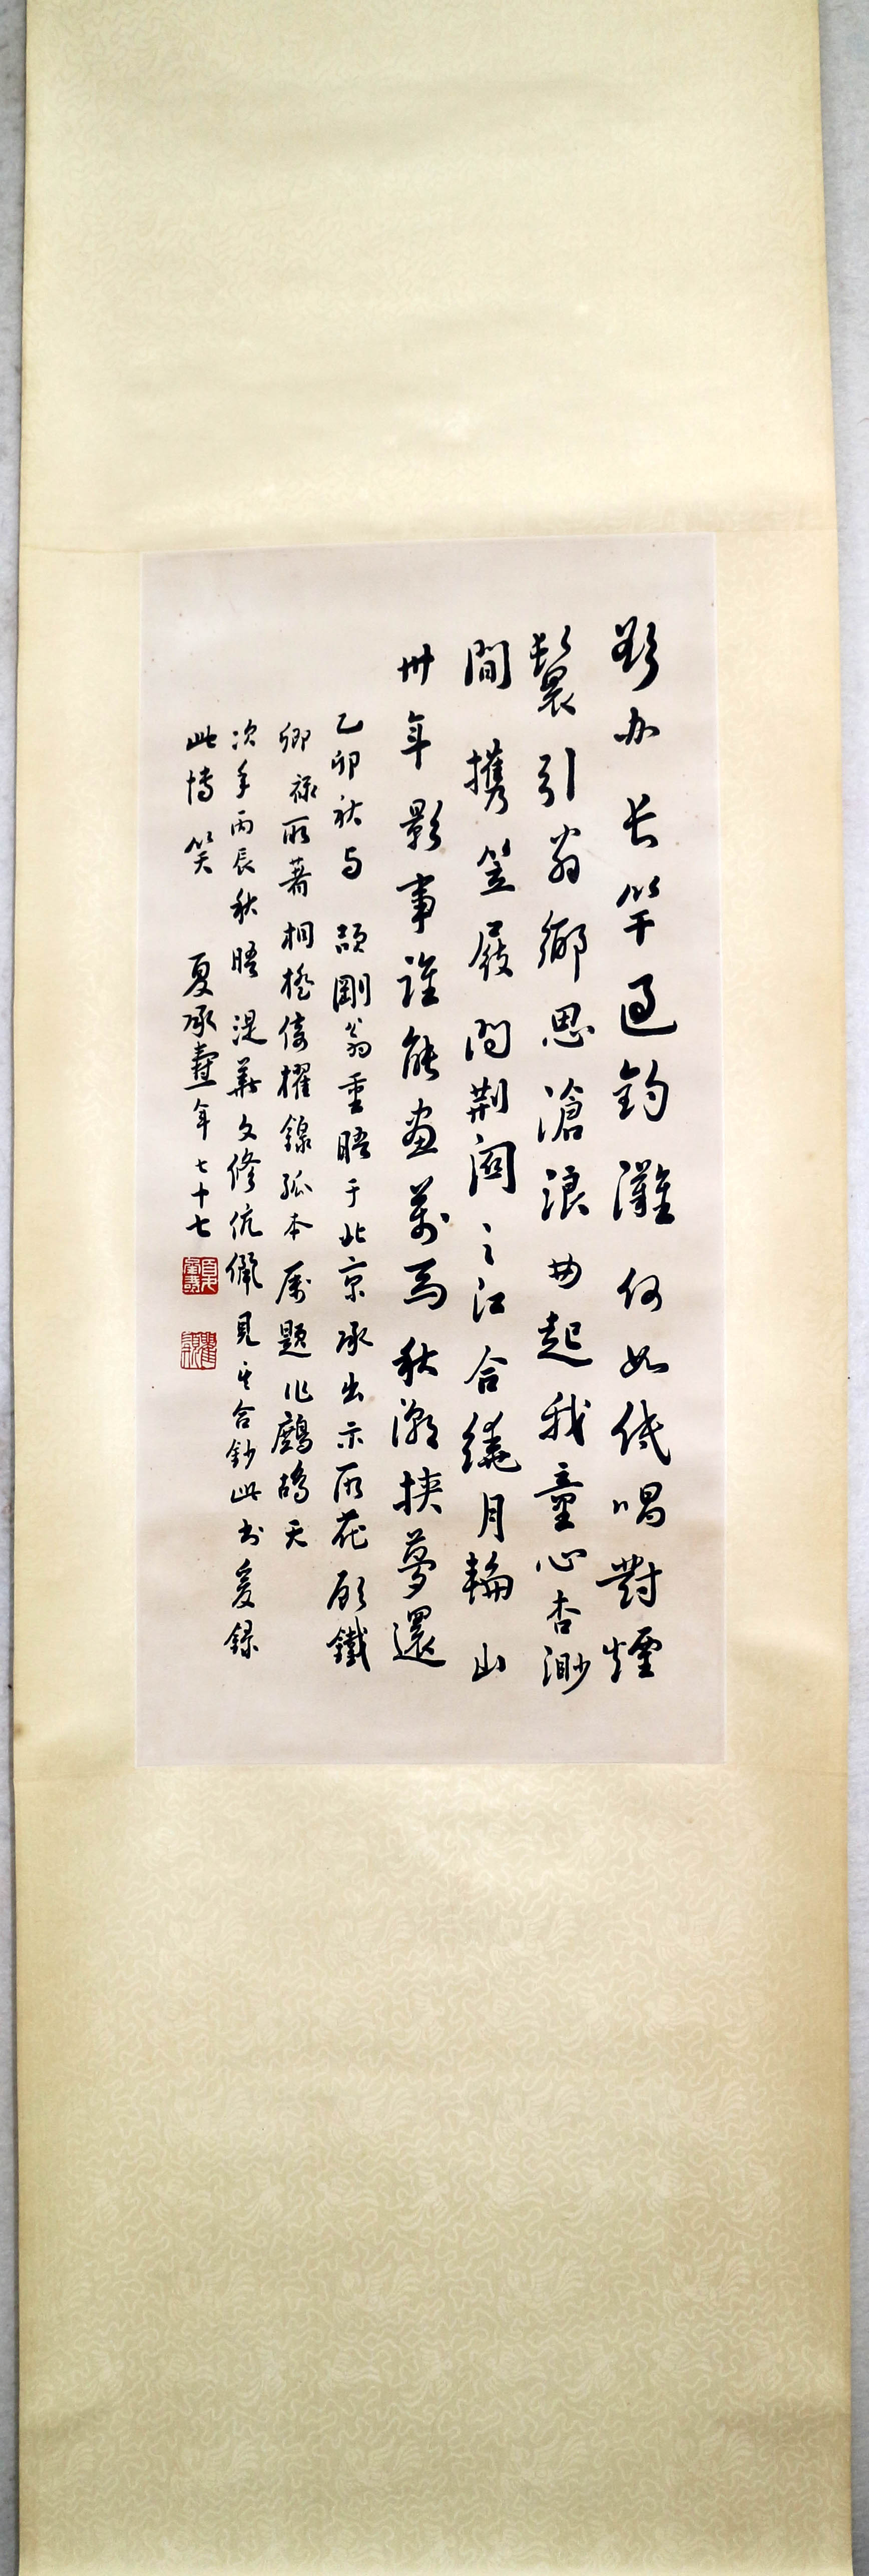 欲办长竿過釣灘何如低唱對煙
鬟引翁鄉思滄浪曲起我童心杏渺
間攜笠屐問荆關之江合繞月輪山
卅年影事誰能畫萬馬秋潮挟夢還
乙卯秋与頡剛翁重晤于北京承出示所花顾鐵
卿禄所著桐橋倚櫂錄孤本属題作鷓鴣天
次年丙辰秋晤湜華文修伉儷見其合鈔此书爰録
此博笑 夏承燾年七十七